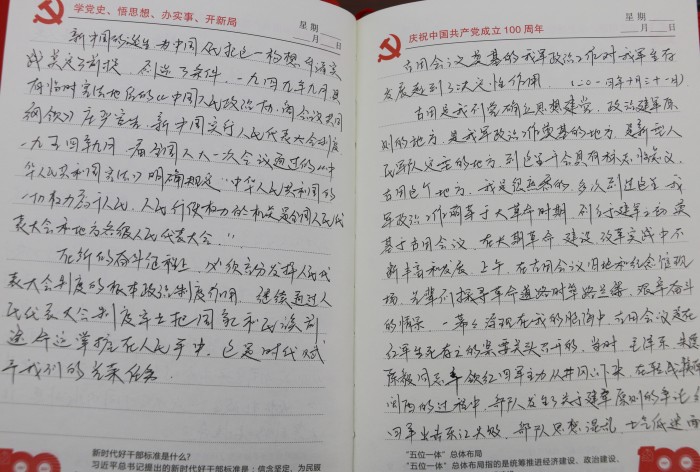 学党史、悟思想、办实事、开新局
星期
月 日
新中国的诞生 为中国人民把这一构想付诸实
践奠定了前提，创造了条件。一九四九年九月具
有临时宪法地位的《中国人民政治协商会议共同
纲领》庄严宣告，新中国实行人民代表大会制度，
一九五四年九月，一届全国人大一次会议通过的《中
华人民共和国宪法》明确规定："中华人民共和国的
一切权力属于人民。人民行使权力的机关是全国人民代
表大会和地方各级人民代表大会。"
在新的奋斗征程上，必须充分发挥人民代
表大会制度的根本政治制度作用，继续通过人
民代表大会制度牢牢把国家和民族前
途命运掌握在人民手中。这是时代赋
予我们的光荣任务。
新时代好干部标准是什么？
习近平总书记提出的新时代好干部标准是：信念坚定、为民服
100
庆祝中国共产党成立 100 周年
星期
月 日
古田会议奠基的我军政治工作对我军生存
发展起到了决定性作用 (二〇一四年十月三十一日)
古田是我们党确立思想建党、政治建军原
则的地方，是我军政治工作奠基的地方，是新型人
民军队定型的地方，到这里开会具有标志性意义。
古田这个地方，我是很熟悉的，多次到过这里 我
军政治工作萌芽于大革命时期，创立于建军之初，奠
基于古田会议，在大期革命 建设 改革实践中不
断丰富和发展。上午，在古田会议旧址和纪念馆现
场，先辈们探寻革命道路时筚路蓝缕，艰辛奋斗
的情景，一幕幕浮现在我的脑海中，古田会议是在
红军生死存亡的紧要关头召开的，当时，毛泽东 朱德
陈毅同志率领红四军主力从井冈山下来，在转战赣南
闽西的过程中，部队发生了关于建军原则的争论，
四军出击东江失败，部队思想混乱，士气低迷
"五位一体"总体布局
"五位一体"总体布局指的是统筹推进经济建设、政治建设、
100